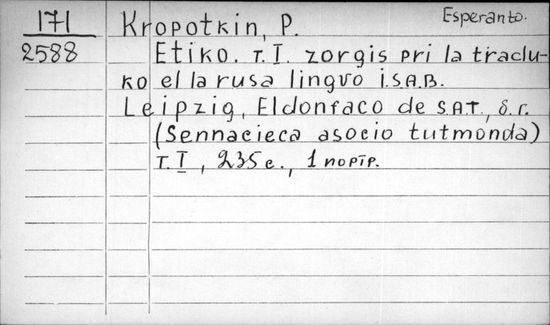 171
2588
Esperanto.
Kropotkin, P.
Etiko. т. I. zorgis pri la traduko el la rusa lingvo I.S.A.B.
Leipzig, Eldonfaco de S.A.T., б. г.
(Sennacieca asocio tutmonda)
т. I, 235 с., 1 портр.